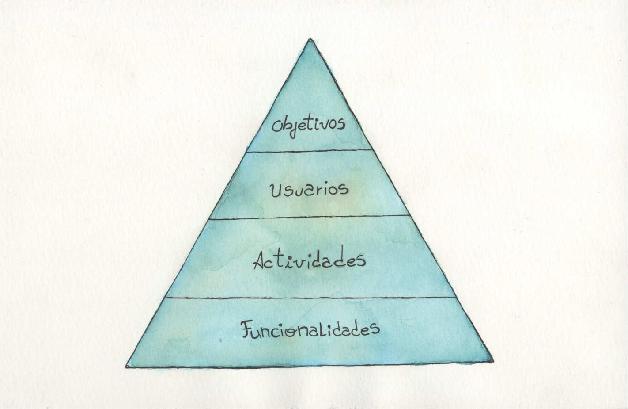 Objetivos
Usuarios
Actividades
Funcionalidades